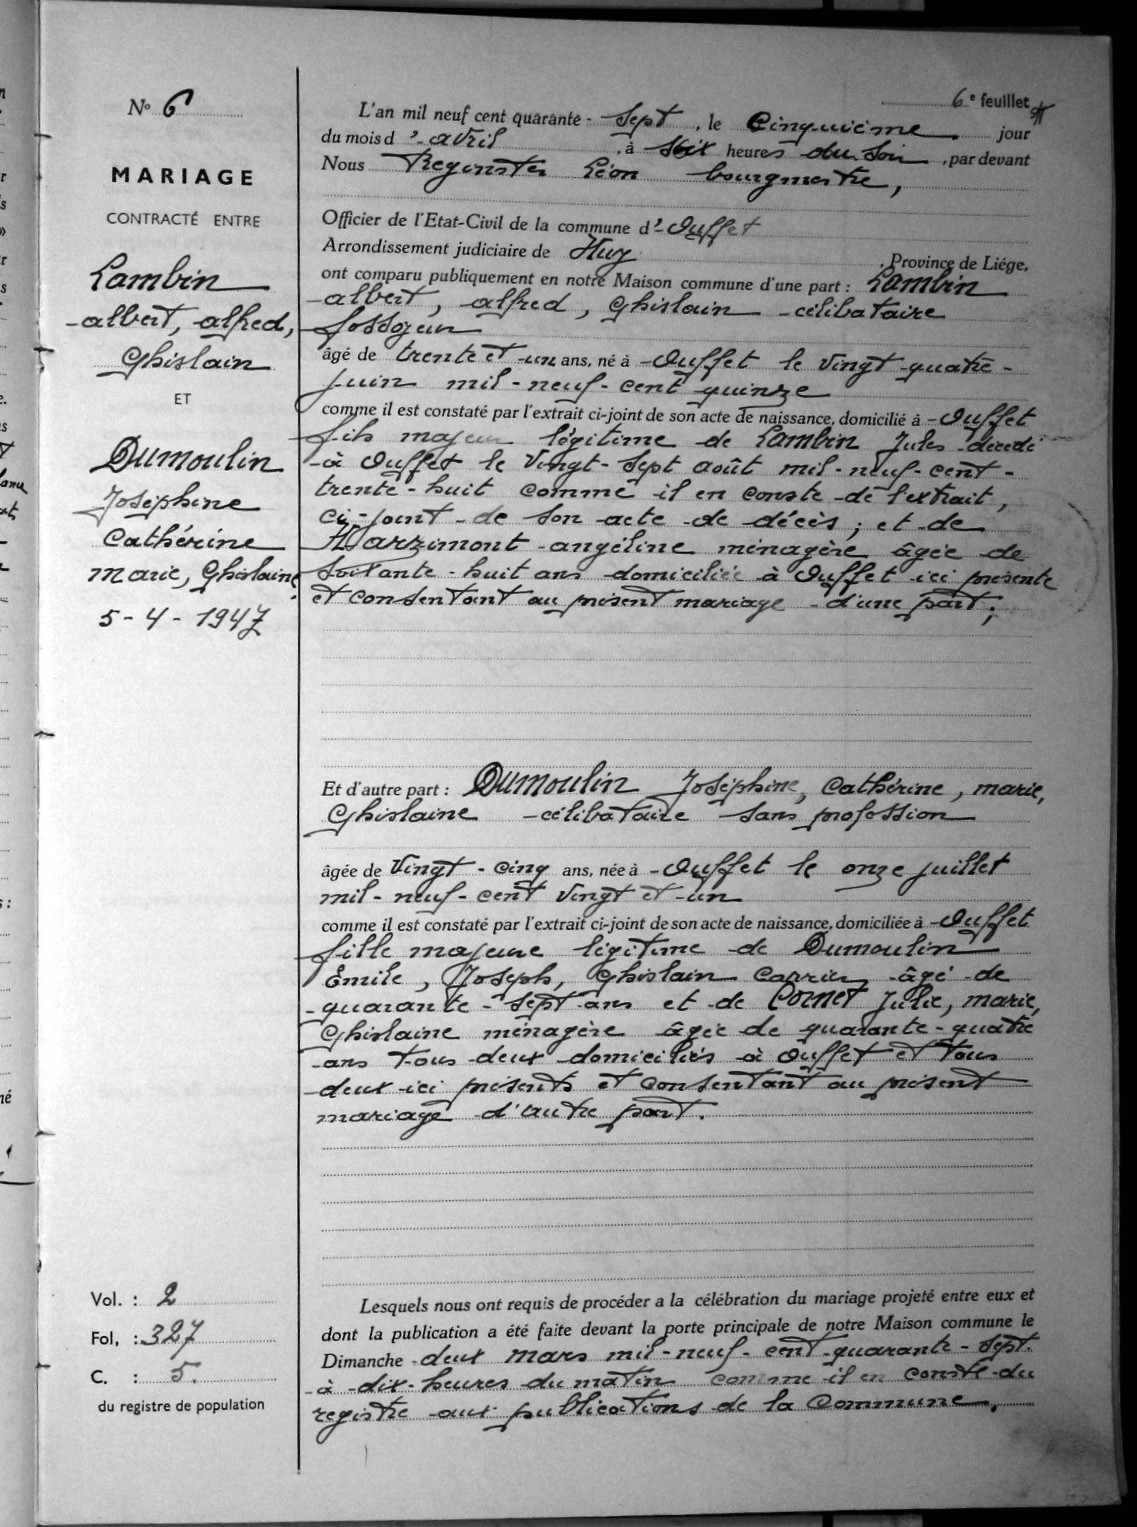 6e feuillet
N° 6
MARIAGE
CONTRACTÉ ENTRE
Lambin
albert, alfred,
Ghislain
ET
Dumoulin
Joséphine
Cathérine
marie, Ghislaine
5-4-1947
Vol. : 2
Fol, : 327
C. : 5.
du registre de population
L'an mil neuf cent quarante- sept, le Cinquième jour
du mois d'avril, à six heures du soir, par devant
Nous Léon bourgmestre,
Officier de l'Etat-Civil de la commune d'Ouffet
Arrondissement judiciaire de Huy, Province de Liége,
ont comparu publiquement en notre Maison commune d'une part : Lambin
albert, alfred, Ghislain célibataire
fossoyeur
âgé de trente et un ans, né à Ouffet le vingt-quatre
juin mil-neuf-cent quinze
comme il est constaté par l'extrait ci-joint de son acte de naissance, domicilié à Ouffet
fils majeur légitime de Lambin Jules décédé
à Ouffet le vingt-sept août mil-neuf-cent-
trente-huit comme il en conste de l'extrait,
ci-joint de son acte de décès ; et de
Marzimont angéline ménagère âgée de
soixante-huit ans domiciliée à Ouffet ici présente
et consentant au présent mariage d'une part ;
Et d'autre part : Dumoulin Joséphine, Cathérine, marie,
Ghislaine célibataire sans profession
âgée de vingt-cinq ans, née à Ouffet le onze juillet
mil-neuf-cent vingt et un
comme il est constaté par l'extrait ci-joint de son acte de naissance, domiciliée à Ouffet
fille majeure légitime de Dumoulin
Emile, Joseph, Ghislain carrier âgé de
quarante-sept ans et de Cornet Julie, marie,
Ghislaine ménagère âgée de quarante-quatre
ans tous deux domiciliés à Ouffet et tous
deux ici présents et consentant au présent
mariage d'autre part.
Lesquels nous ont requis de procéder a la célébration du mariage projeté entre eux et
dont la publication a été faite devant la porte principale de notre Maison commune le
Dimanche deux mars mil-neuf-cent-quarante-sept.
à dix heures du matin comme il en conste du
registre aux publications de la Commune.